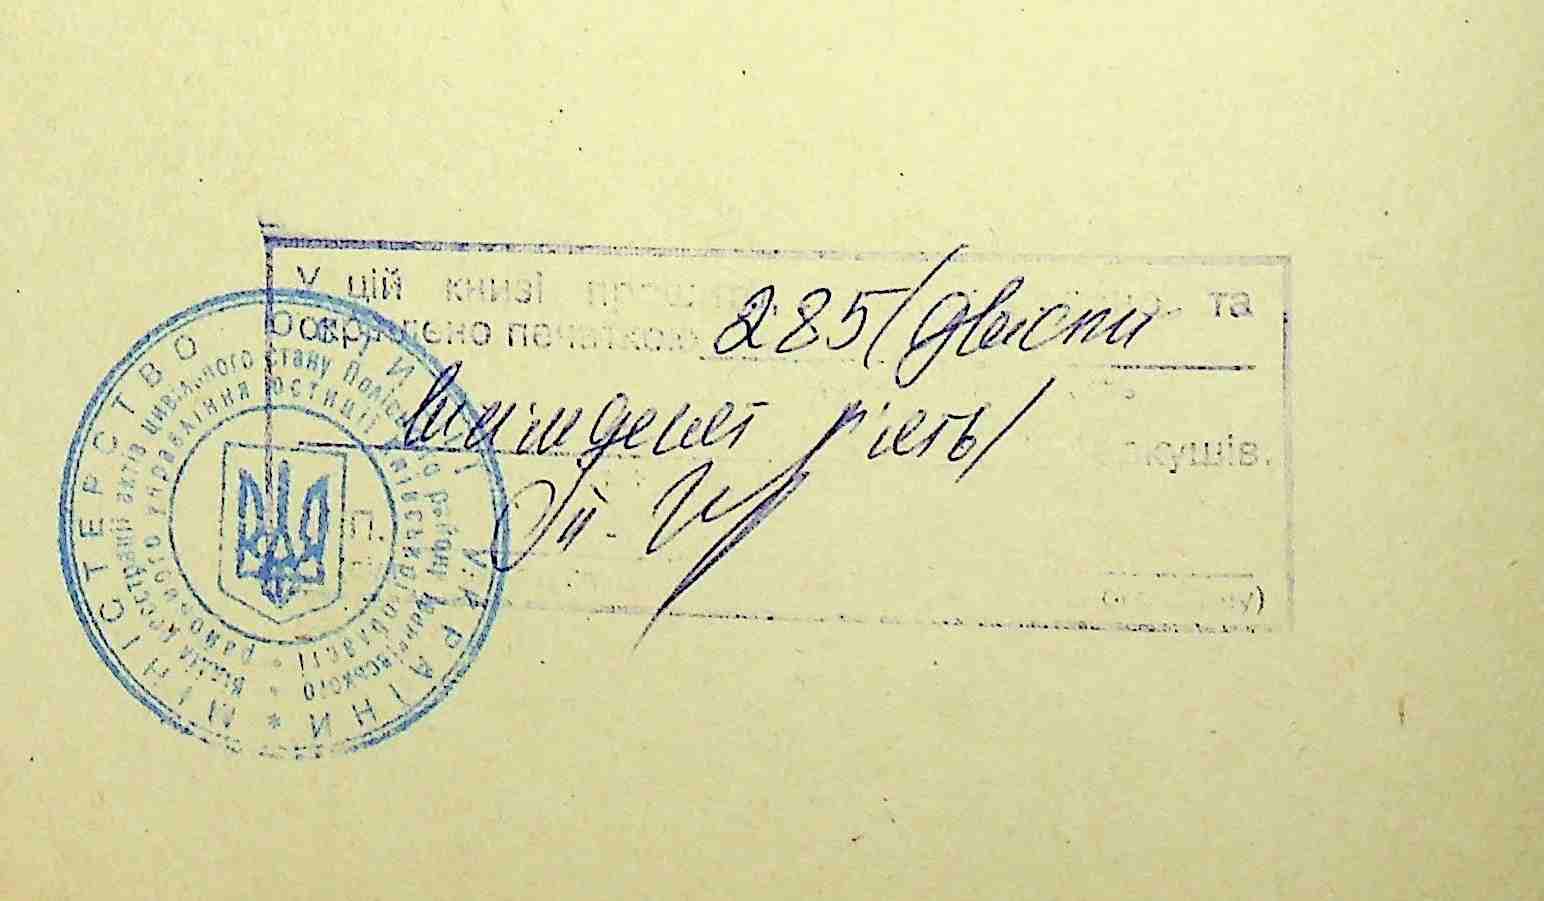 У цій книзі та
скріплено печаткою 285 (двісти
вісімдесят п'ять)
аркушів.
П.
МІНІСТЕРСТВО ЮСТИЦІЇ УКРАЇНИ *
Відділ реєстрації актів цивільного стану Поліського району Іванківського
районного управління юстиції Київської області *